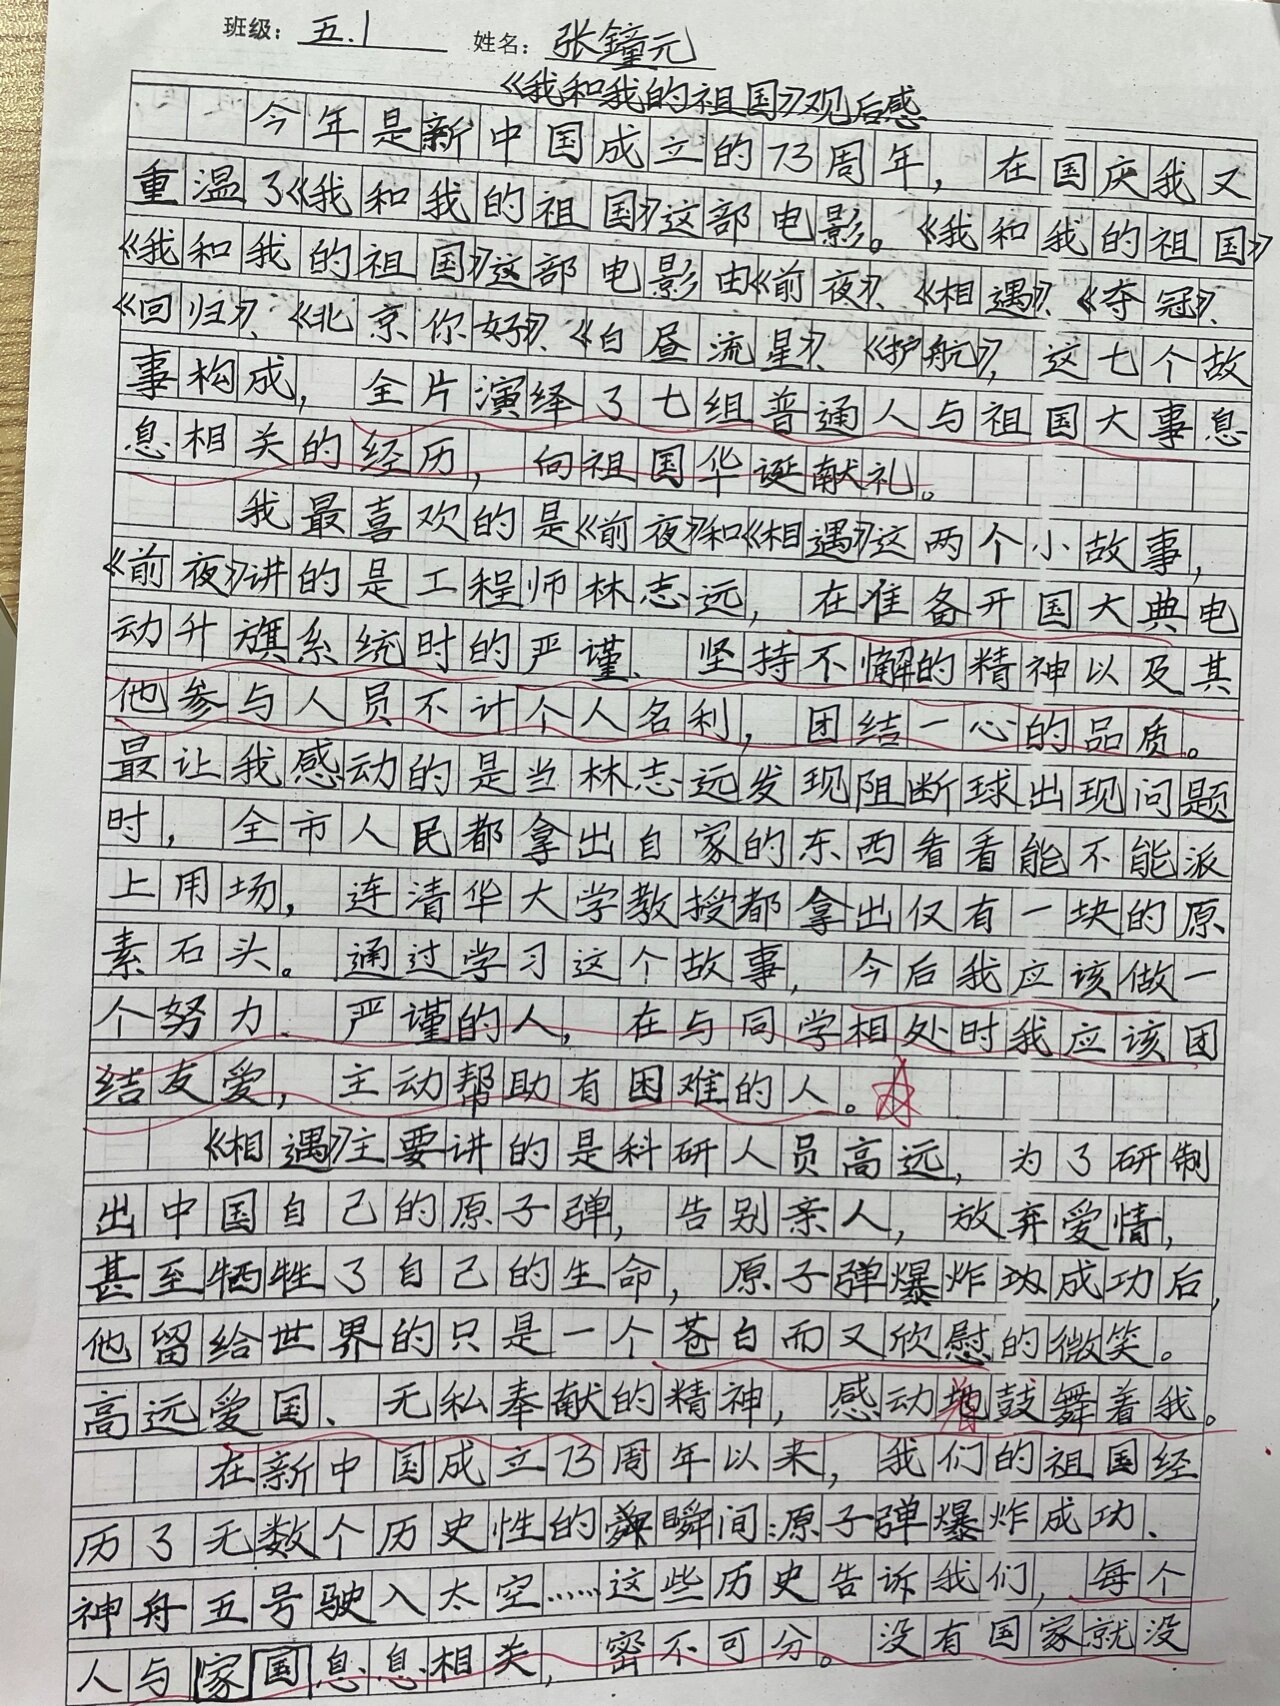 班级：五.1 姓名：张鐘元
《我和我的祖国》观后感
今年是新中国成立的73周年，在国庆我又
重温了《我和我的祖国》这部电影。《我和我的祖国》
《我和我的祖国》这部电影由《前夜》、《相遇》、《夺冠》、
《回归》、《北京你好》、《白昼流星》、《护航》，这七个故
事构成，全片演绎了七组普通人与祖国大事息
息相关的经历，向祖国华诞献礼。
我最喜欢的是《前夜》和《相遇》这两个小故事，
《前夜》讲的是工程师林志远，在准备开国大典电
动升旗系统时的严谨、坚持不懈的精神以及其
他参与人员不计个人名利，团结一心的品质。
最让我感动的是当林志远发现阻断球出现问题
时，全市人民都拿出自家的东西看看能不能派
上用场，连清华大学教授都拿出仅有一块的原
素石头。通过学习这个故事，今后我应该做一
个努力、严谨的人，在与同学相处时我应该团
结友爱，主动帮助有困难的人。
《相遇》主要讲的是科研人员高远，为了研制
出中国自己的原子弹，告别亲人，放弃爱情，
甚至牺牲了自己的生命，原子弹爆炸功成功后，
他留给世界的只是一个苍白而又欣慰的微笑。
高远爱国、无私奉献的精神，感动地鼓舞着我。
在新中国成立73周年以来，我们的祖国经
历了无数个历史性的瞬间：原子弹爆炸成功、
神舟五号驶入太空……这些历史告诉我们，每个
人与家国息息相关，密不可分。没有国家就没